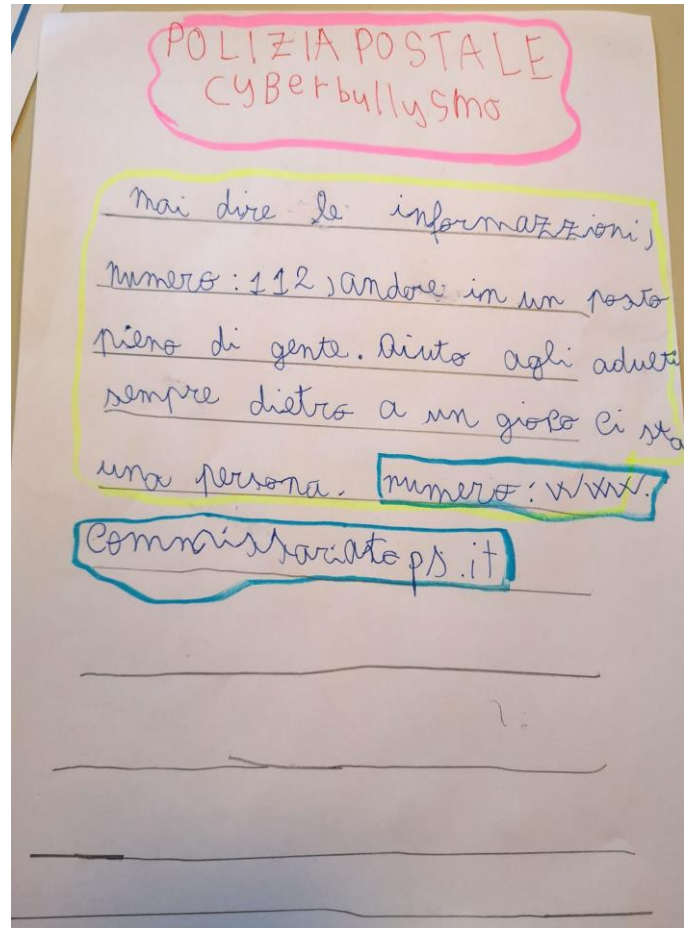 POLIZIA POSTALE
CYBerbullysmo
mai dire le informazzioni,
numero: 112, andare in un posto
pieno di gente. Aiuto agli adulti
sempre dietro a un gioco ci sta
una persona. numero: www.
commissariatops.it